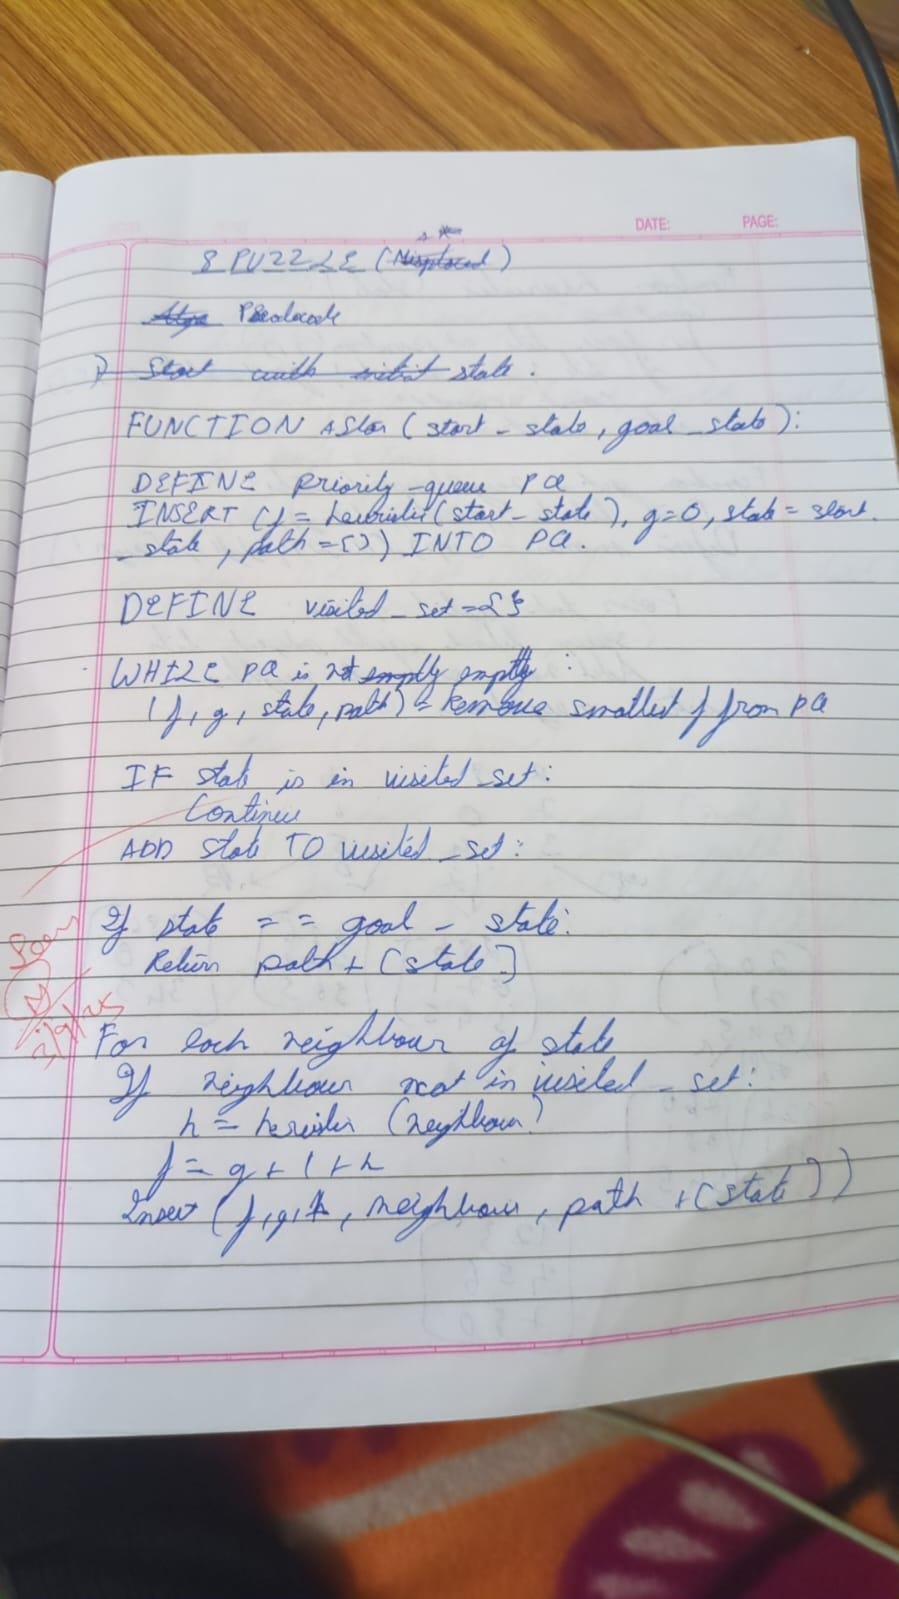 DATE: PAGE:
A *
8 PUZZLE (Misplaced)
Algo Pseudocode
1) Start with initial state.
FUNCTION AStar (start_state, goal_state):
DEFINE priority-queue PQ
INSERT (f = heuristic(start_state), g=0, state = start
_state, path=[]) INTO PQ.
DEFINE visited_set={}
WHILE PQ is not empty empty:
(f, g, state, path) = Remove smallest f from PQ
IF state is in visited_set:
Continue
ADD state TO visited_set:
If state == goal_state:
Return path + [state]
For each neighbour of state
If neighbour not in visited_set:
h = heristic (neighbour)
f = g + 1 + h
Insert (f, g, neighbour, path + [state])
Seen